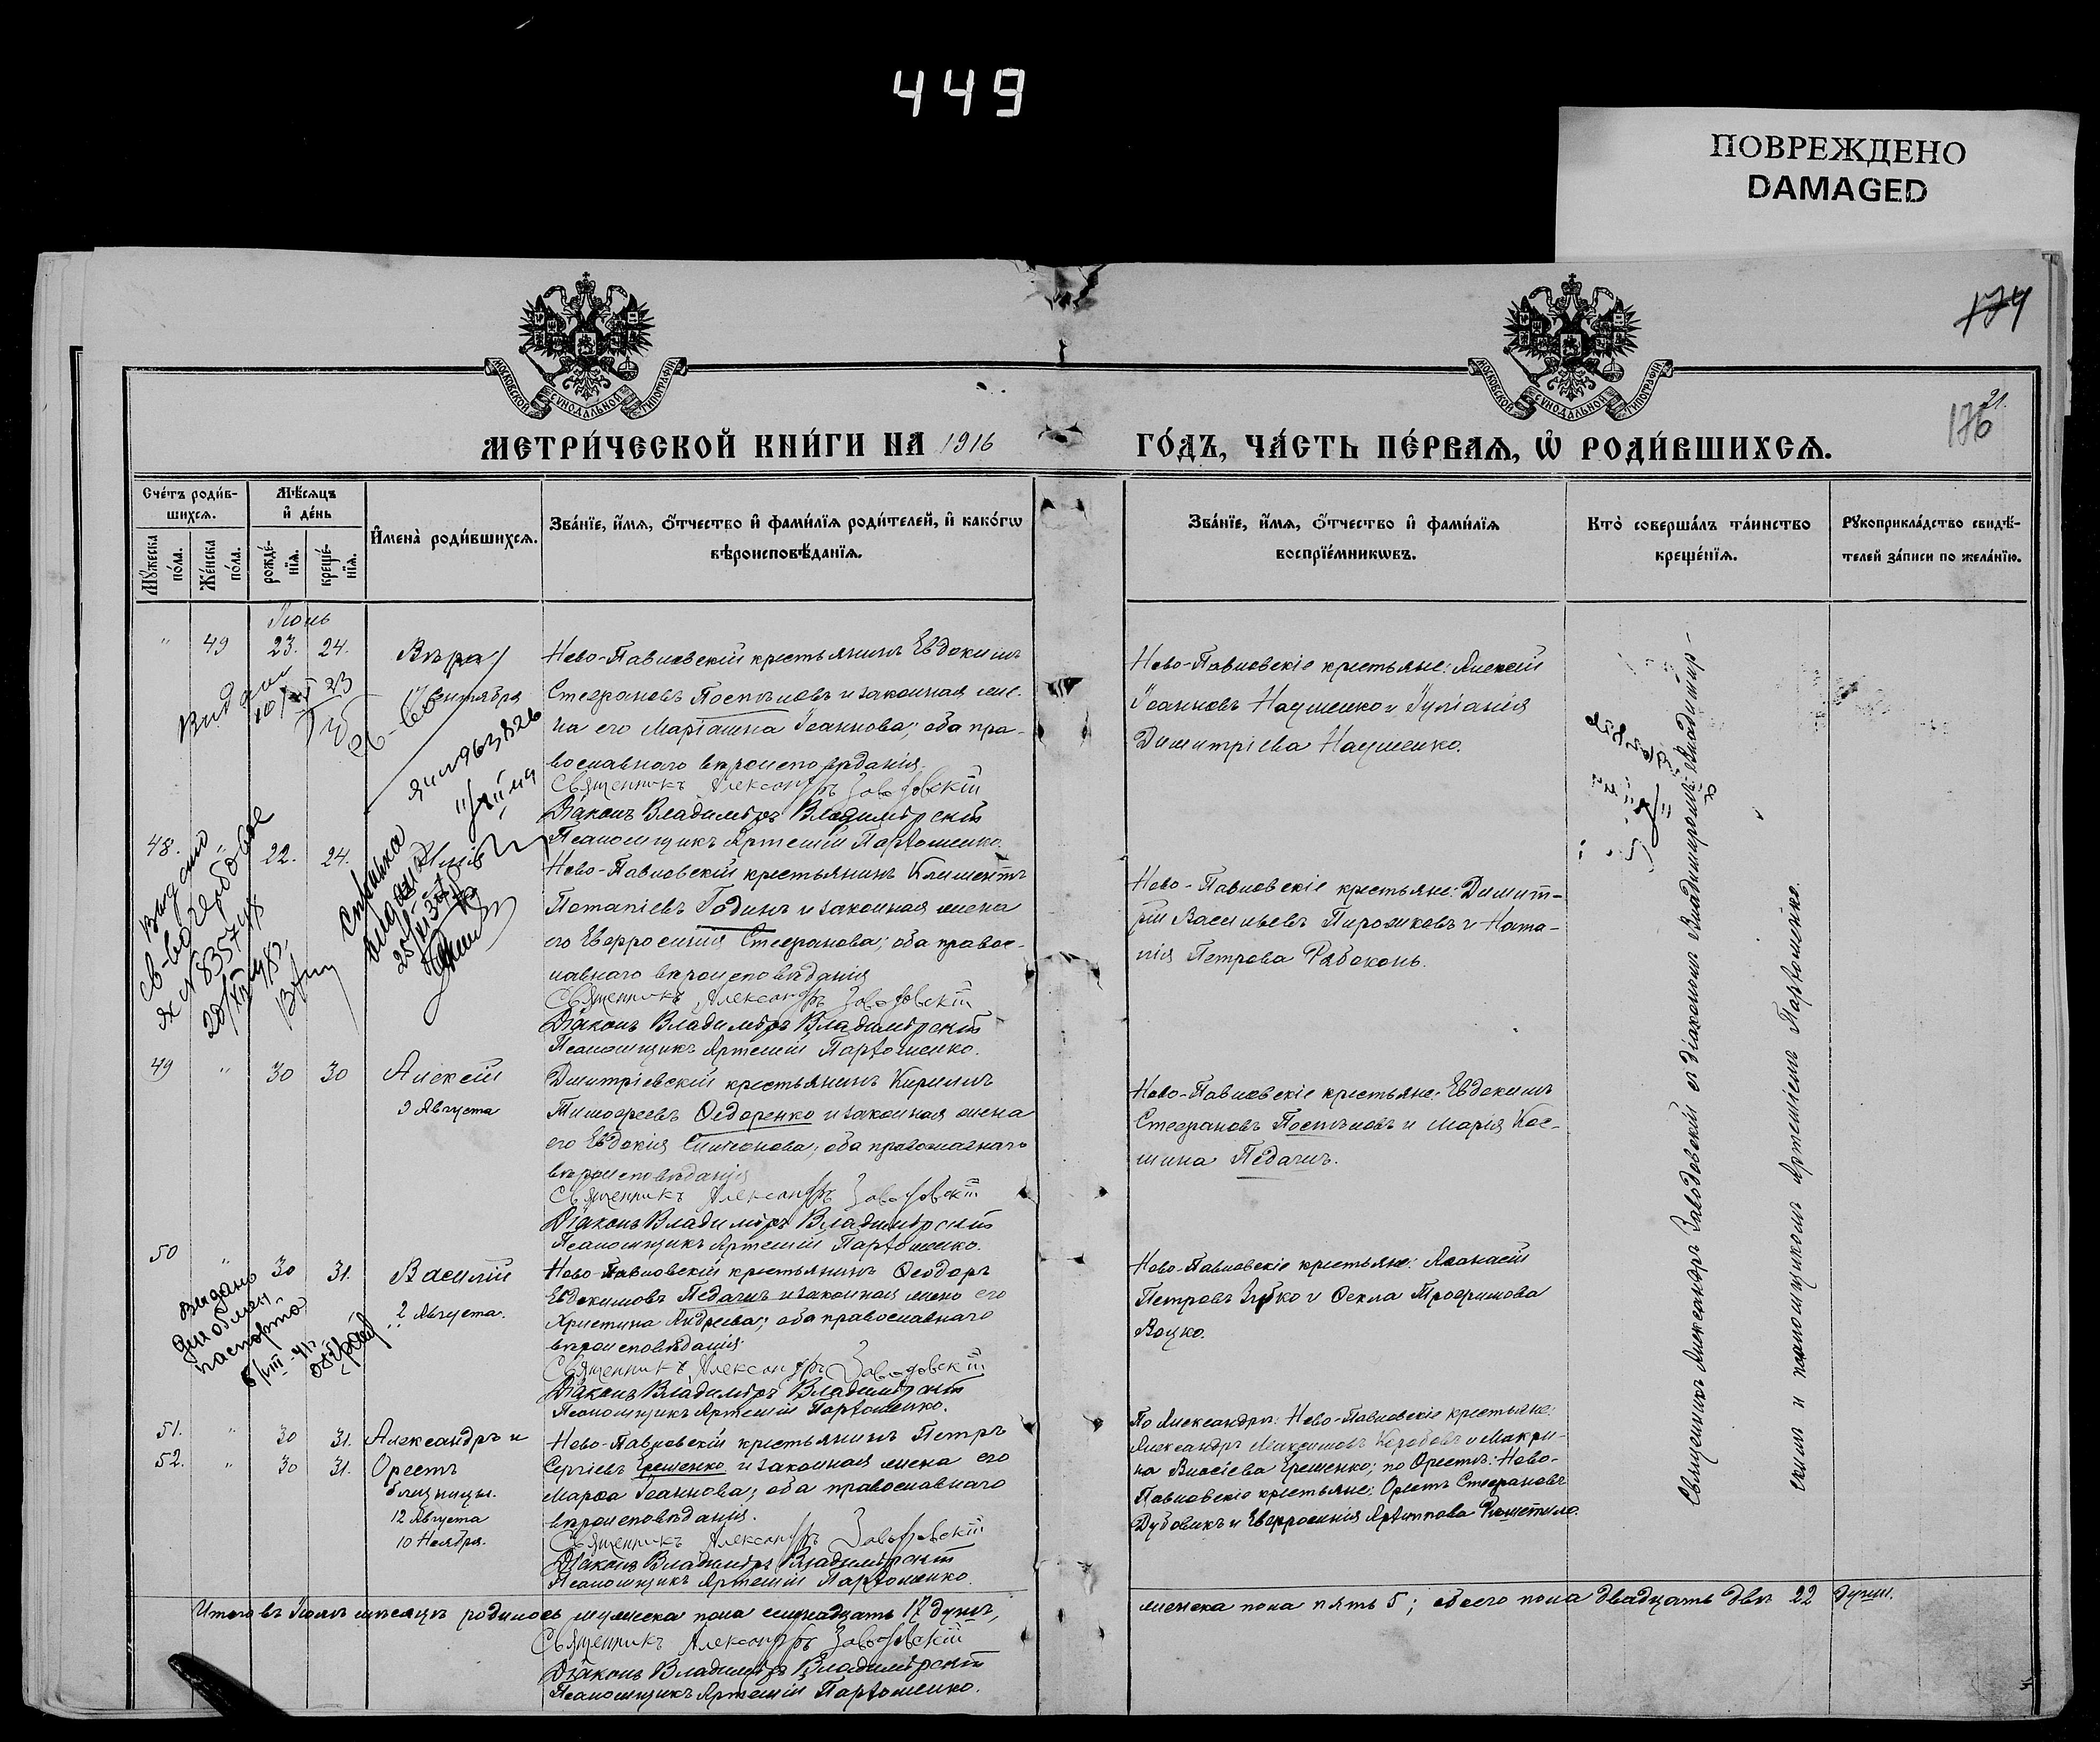 449
ПОВРЕЖДЕНО
DAMAGED
174
21.
176
МОСКОВСКОЙ СѴНОДАЛЬНОЙ ТИПОГРАФІИ
МОСКОВСКОЙ СѴНОДАЛЬНОЙ ТИПОГРАФІИ
МЕТРИ́ЧЕСКОЙ КНИ́ГИ НА 1916
ГО́ДЪ, ЧА́СТЬ ПЕ́РВАѦ, Ѡ҆ РОДИ́ВШИХСѦ.
Сче́тъ роди́в-
шихсѧ.
Му́жеска по́ла.
Же́нска по́ла.
Мѣ́сѧцъ и҆ де́нь
рожде́-нїѧ.
креще́-нїѧ.
И҆мена̀ роди́вшихсѧ.
Зва́нїе, и҆́мѧ, ѻ҆́тчество и҆ фами́лїѧ роди́телей, и҆ како́гѡ
вѣроисповѣ́данїѧ.
Зва́нїе, и҆́мѧ, ѻ҆́тчество и҆ фами́лїѧ
воспрїе́мникѡвъ.
Кто̀ соверша́лъ та́инство
креще́нїѧ.
Рꙋкоприкла́дство свидѣ́-
телей за́писи по жела́нїю.
Іюль
" 49 23. 24. Вѣра
17 Сентября
Ново-Павловскій крестьянинъ Евдокимъ
Стефановъ Поспѣловъ и законная же-
на его Маріамна Іоаннова; оба пра-
вославнаго вѣроисповѣданія.
Священникъ Александръ Заводовскій
Діаконъ Владиміръ Владимірскій
Псаломщикъ Артемій Парѳоменко.
Ново-Павловскіе крестьяне: Алексей
Іоанновъ Науменко и Іуліанія
Димитріева Науменко.
Видано
св-во
48. " 22. 24.
Ново-Павловскій крестьянинъ Климентъ
Потапіевъ Годинъ и законная жена
его Евфросинія Стефанова; оба правос-
лавнаго вѣроисповѣданія
Священникъ Александръ Заводовскій
Діаконъ Владиміръ Владимірскій
Псаломщикъ Артемій Парѳоменко.
Ново-Павловскіе крестьяне: Димит-
рій Васильевъ Пирожковъ и Ната-
лія Петрова Рябоконь.
Видано
св-во
Справка
видана
49 " 30 30 Алексій
9 Августа
Димитріевскій крестьянинъ Кириллъ
Тимофеевъ Ѳедоренко и законная жена
его Евдокія Симеонова; оба православнаго
вѣроисповѣданія
Священникъ Александръ Заводовскій
Діаконъ Владиміръ Владимірскій
Псаломщикъ Артемій Парѳоменко.
Ново-Павловскіе крестьяне: Евдокимъ
Стефановъ Поспѣловъ и Марія Кос-
мина Педачъ.
50 " 30 31. Василій
2 Августа.
Ново-Павловскій крестьянинъ Ѳеодоръ
Евдокимовъ Педачъ и законная жена его
Христина Андреева; оба православнаго
вѣроисповѣданія
Священникъ Александръ Заводовскій
Діаконъ Владиміръ Владимірскій
Псаломщикъ Артемій Парѳоменко.
Ново-Павловскіе крестьяне: Аѳанасій
Петровъ и Ѳекла Трофимова
Коцко.
видано
для обмен
паспорта
51. " 30 31. Александръ и
52. " 30 31. Орестъ
близнецы.
12 Августа
10 Ноября.
Ново-Павловскій крестьянинъ Петръ
Сергіевъ Ерешенко и законная жена его
Марѳа Іоаннова; оба православнаго
вѣроисповѣданія.
Священникъ Александръ Заводовскій
Діаконъ Владиміръ Владимірскій
Псаломщикъ Артемій Парѳоменко.
По Александрѣ: Ново-Павловскіе крестьяне:
Александръ Максимовъ Коробовъ и Макри-
на Ерешенко; по Орестѣ: Ново-
Павловскіе крестьяне: Орестъ Стефановъ
Дубовикъ и Евфросинія
Священникъ Александръ Заводовскій съ діакономъ Владиміромъ Владимір-
скимъ и псаломщикомъ Артеміемъ Парѳоменко.
Итого въ Іюлѣ мѣсяцѣ родилось мужеска пола семнадцать 17 душъ,
женска пола пять 5; обоего пола двадцать двѣ 22 души.
Священникъ Александръ Заводовскій
Діаконъ Владиміръ Владимірскій
Псаломщикъ Артемій Парѳоменко.